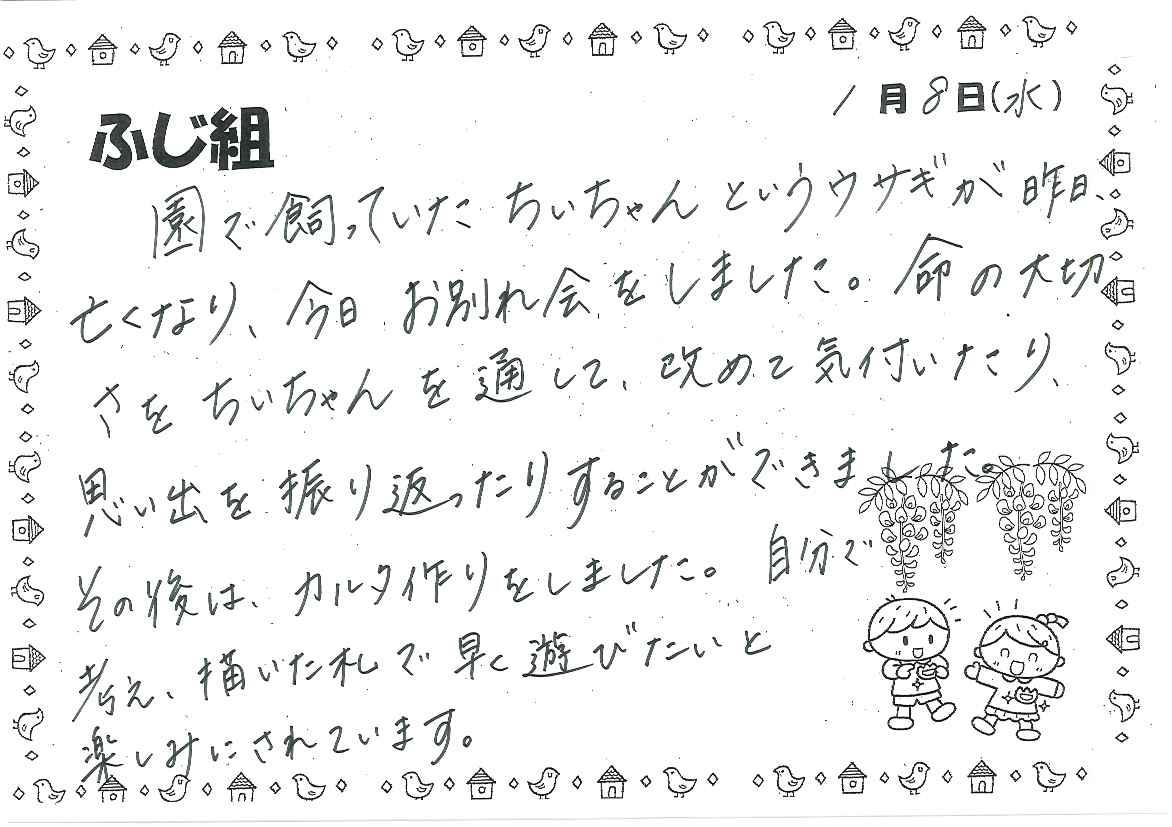 1月8日(水)
ふじ組
園で飼っていたちぃちゃんというウサギが昨日、
亡くなり、今日、お別れ会をしました。命の大切
さをちぃちゃんを通して、改めて気付いたり、
思い出を振り返ったりすることができました。
その後は、カルタ作りをしました。自分で
考え、描いた札で早く遊びたいと
楽しみにされています。